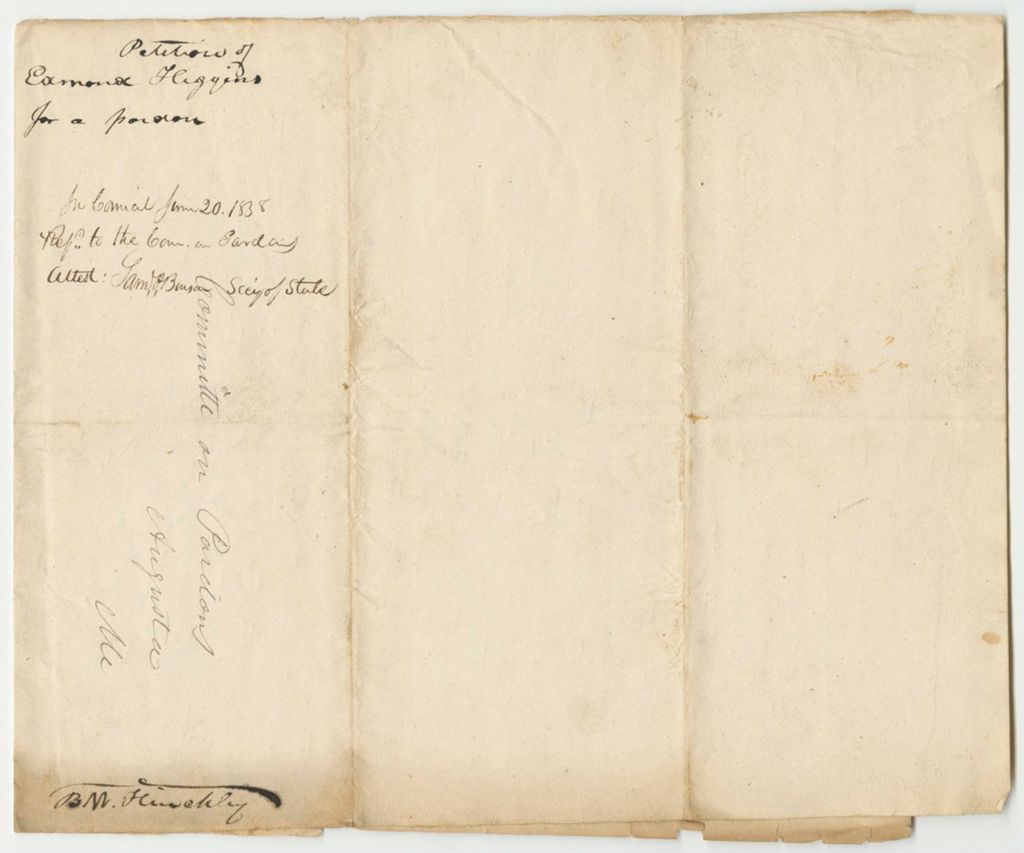 Petition of
Edmond Higgins
for a pardon
In Council June 20. 1838
Ref.d to the Com. on Pardons
Attest: Sam.l P. Benson Sec'y of State
Committe on Pardons
Augusta
Me
B. W. Hinckley